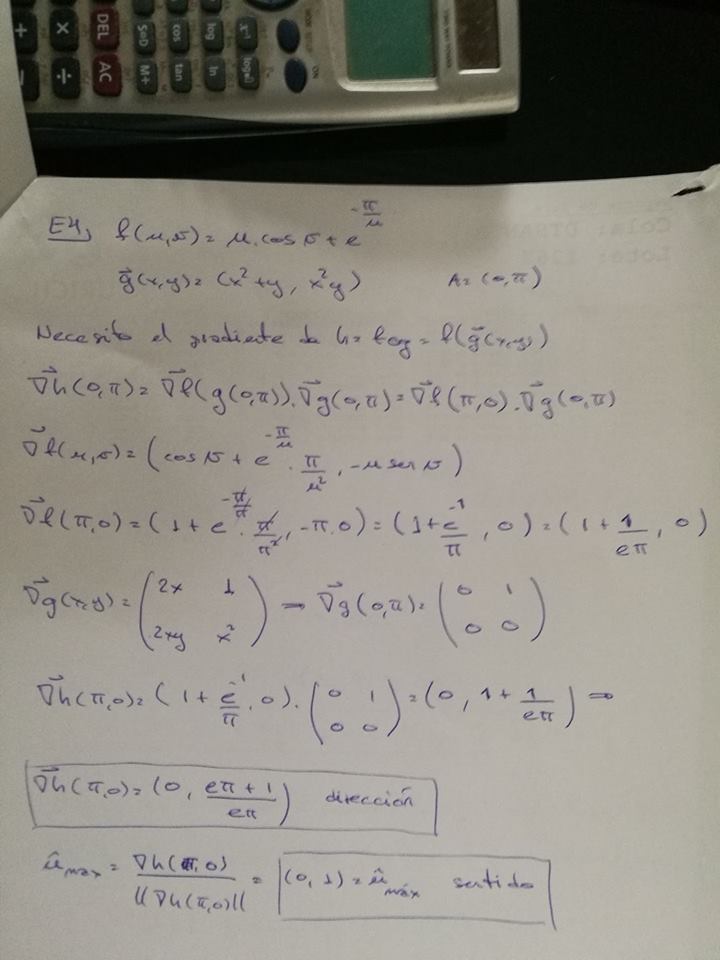 DEL
AC
SoD
M+
cos
tan
log
ln
x⁻¹
ON
+
×
÷
E4) f(u,v) = u.cos v + e^(-π/u)
g⃗(x,y) = (x²+y, x²y) A = (0,π)
Necesito el gradiente de h = fog = f(g⃗(x,y))
∇⃗h(0,π) = ∇⃗f(g(0,π)).∇⃗g(0,π) = ∇⃗f(π,0).∇⃗g(0,π)
∇⃗f(u,v) = (cos v + e^(-π/u) . π/u², -u sen v)
∇⃗f(π,0) = (1 + e^(-π/π) . π/π², -π.0) = (1 + e⁻¹/π, 0) = (1 + 1/eπ, 0)
∇⃗g(x,y) = (2x 1 ; 2xy x²) ⇒ ∇⃗g(0,π) = (0 1 ; 0 0)
∇⃗h(π,0) = (1 + e⁻¹/π, 0) . (0 1 ; 0 0) = (0, 1 + 1/eπ) ⇒
∇⃗h(π,0) = (0, (eπ + 1)/eπ) dirección
û máx = ∇h(π,0) / ||∇h(π,0)|| = (0, 1) = û máx sentido